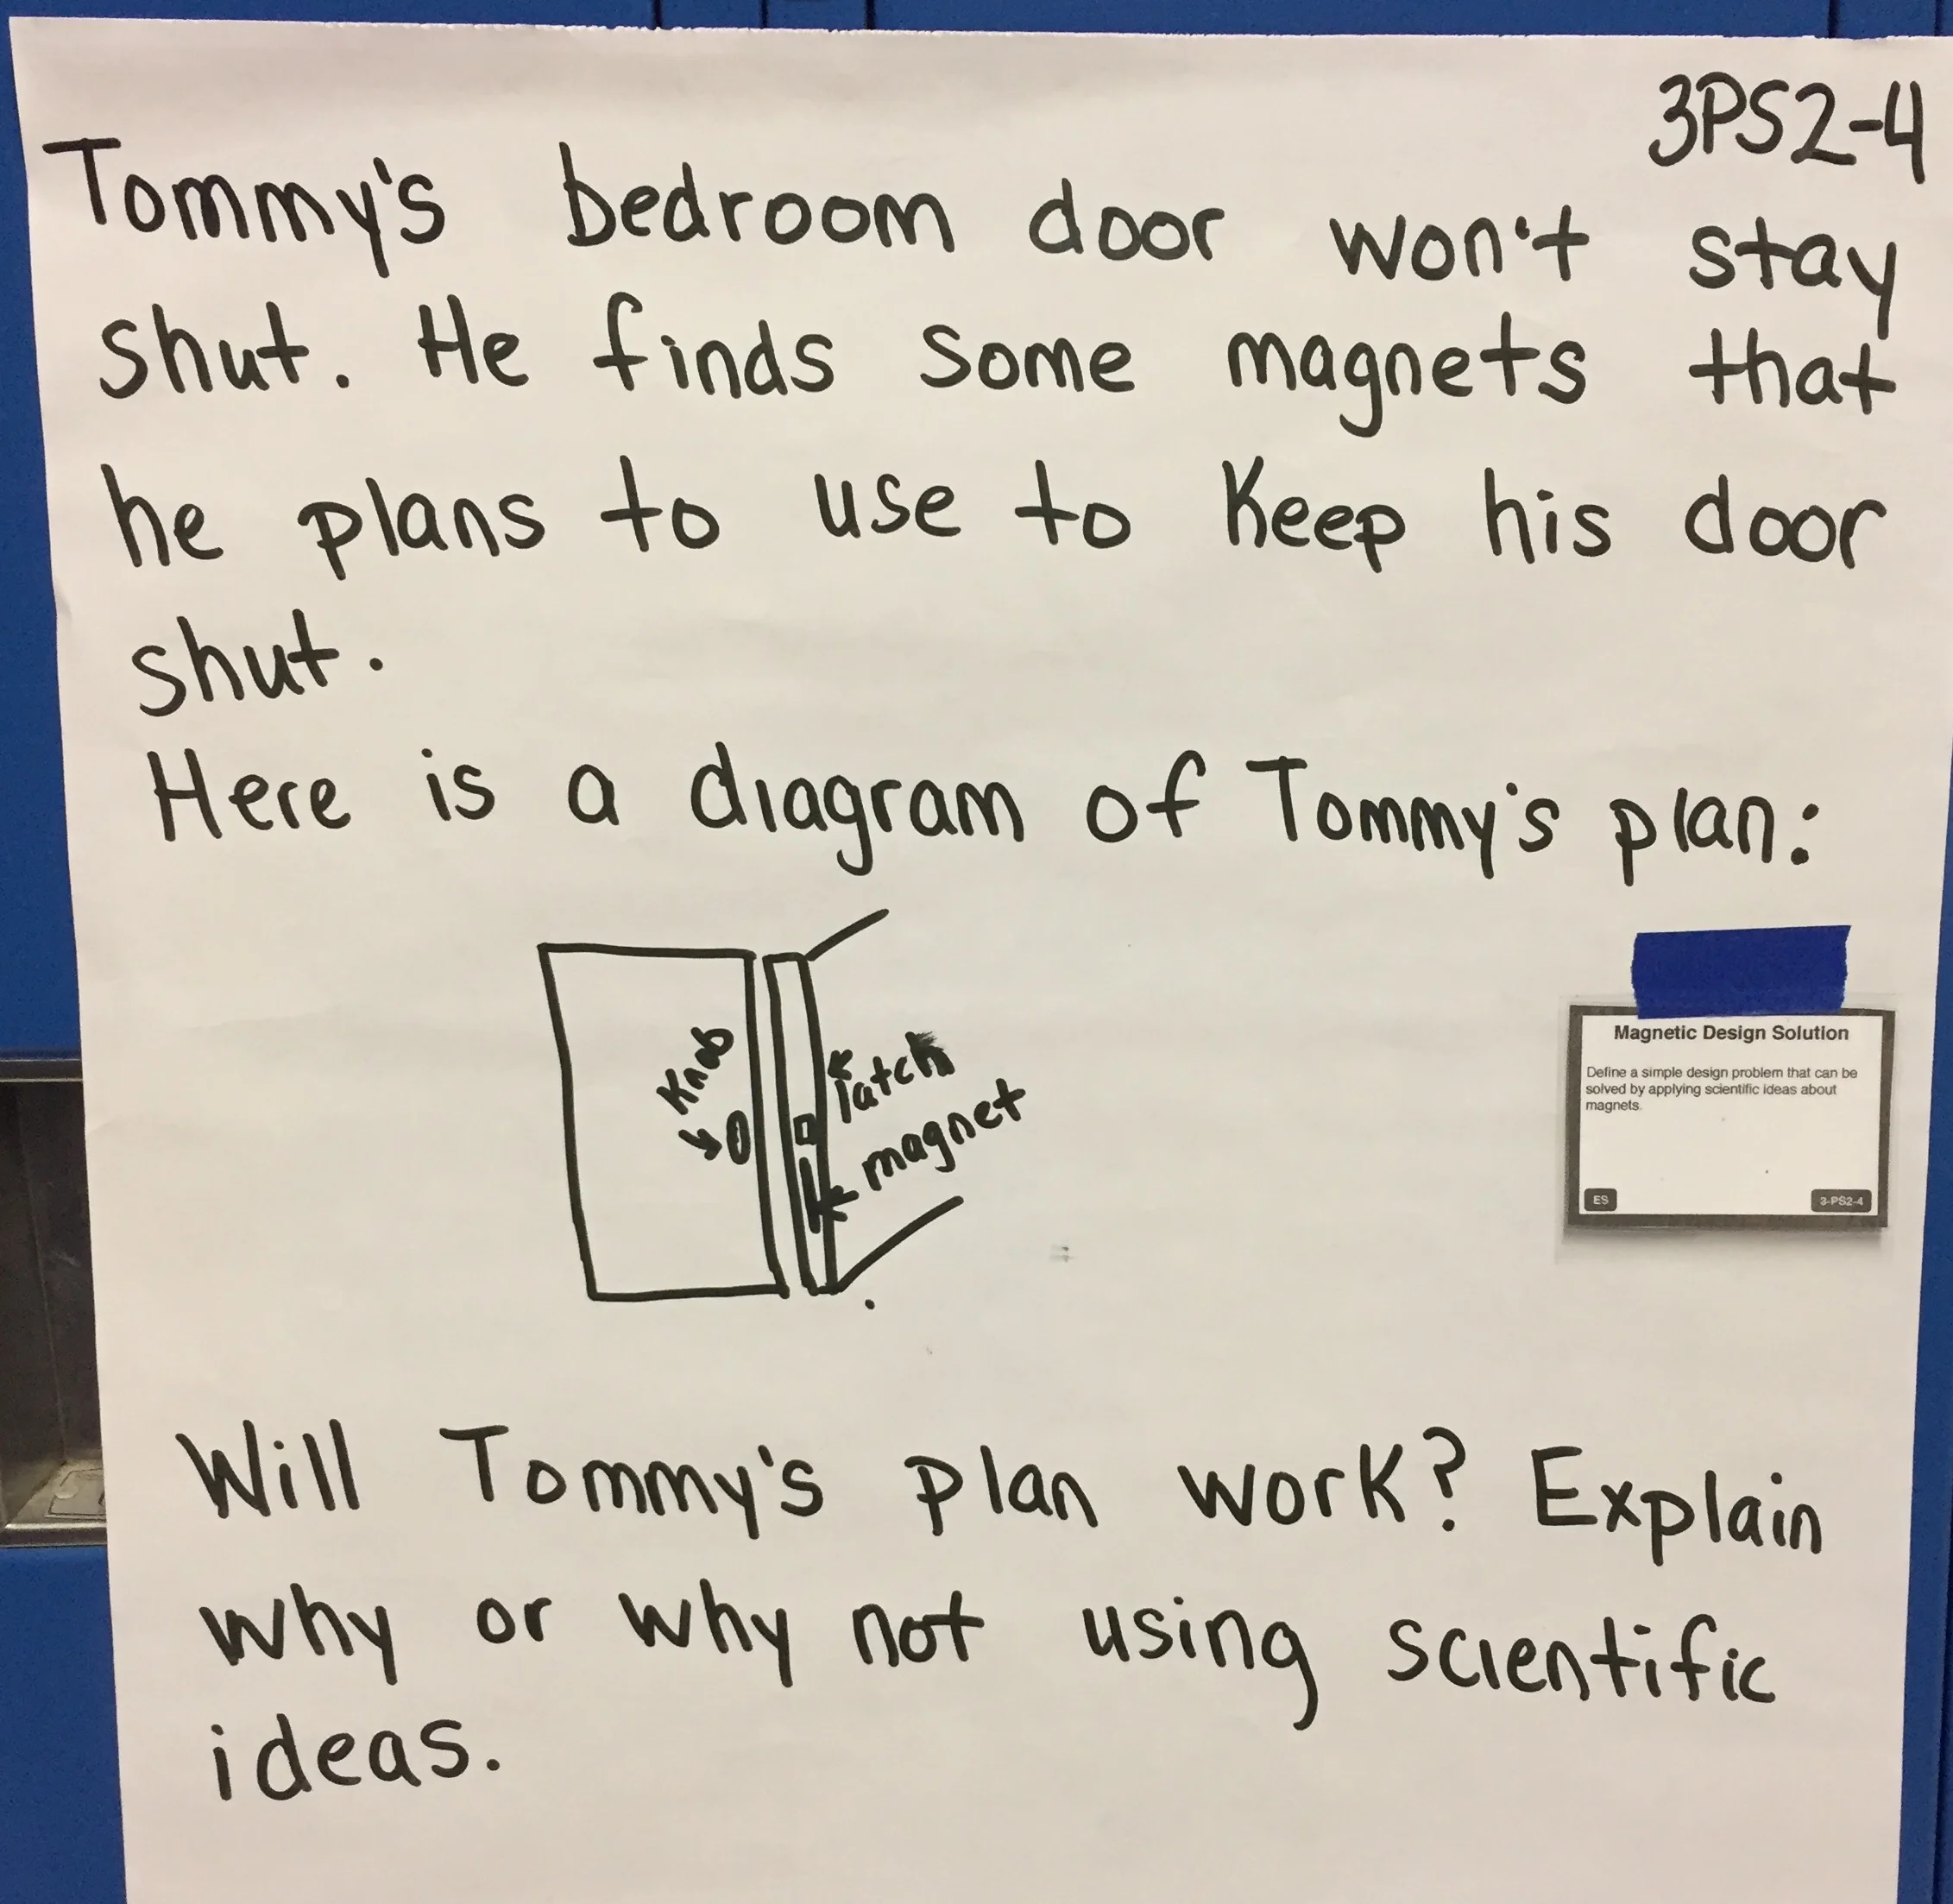 3PS2-4
Tommy's bedroom door won't stay
shut. He finds some magnets that
he plans to use to keep his door
shut.
Here is a diagram of Tommy's plan:
Knob
latch
magnet
Magnetic Design Solution
Define a simple design problem that can be
solved by applying scientific ideas about
magnets.
ES
3-PS2-4
Will Tommy's plan work? Explain
why or why not using scientific
ideas.